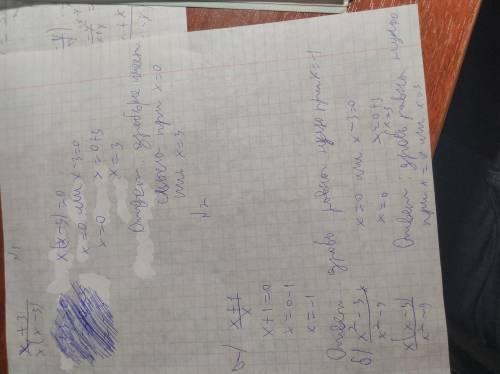 №1
x + 3
x(x-3)
x(x-3)=0
x=0 или x-3=0
x=0 x=0+3
x=3
Ответ: дробь имеет
смысл при x=0
или x=3
№2
а) x+1
x
x+1=0
x=0-1
x=-1
Ответ дробь равна нулю при x=-1
б) x²-3x
x²-9
x(x-3)
x²-9
x=0 или x-3=0
x=0 x=0+3
x=3
Ответ дробь равна нулю
при x=0 или x=3